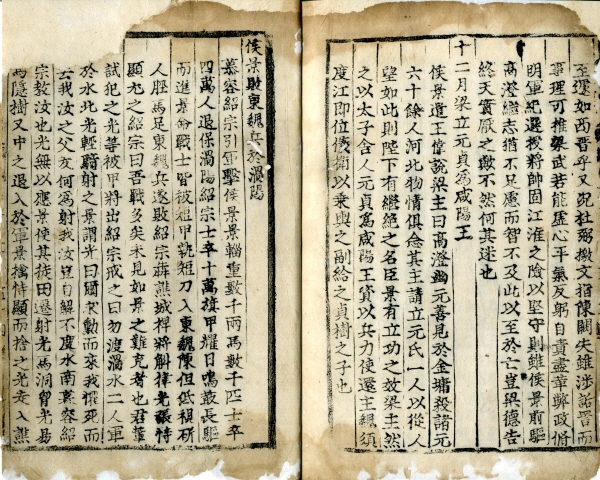 至還如西晋乎又況杜弼檄文指陳闕失雖涉詬詈而
事理可推梁武若能虛心平氣反躬自責盡革弊政脩
明軍紀選授將帥固江淮之險以堅守則雖侯景前驅
高澄繼志猶不足慮而智不及此以至於亡豈與德告
終天實厭之歟不然何其迷也
十二月梁立元貞爲咸陽王
侯景遣王偉說梁主曰高澄幽元善見於金墉殺諸元
六十餘人河北物情俱念其主請立元氏一人以從人
望如此則陛下有繼絶之名臣景有立功之效梁主然
之以太子舍人元貞爲咸陽王資以兵力使還主魏須
度江即位儀衛以乘輿之副給之貞樹之子也
侯景敗東魏兵於渦陽
慕容紹宗引軍擊侯景景輜重數千兩馬數千匹士卒
四萬人退保渦陽紹宗士卒十萬旗甲耀日鳴鼓長驅
而進景命戰士皆被短甲執短刀入東魏陳但低視斫
人脛馬足東魏兵遂敗紹宗奔譙城裨將斛律光張恃
顯尤之紹宗曰吾戰多矣未見如景之難克者也君輩
試犯之光等被甲將出紹宗戒之曰勿渡渦水二人軍
於水北光輕騎射之景謂光曰爾求勳而來我懼死而
去我汝之父友何爲射我汝豈自解不度水南慕容紹
宗教汝也光無以應景使其徒田遷射光馬洞胷光易
馬隱樹又中之退入於軍景擒恃顯而捨之光走入譙